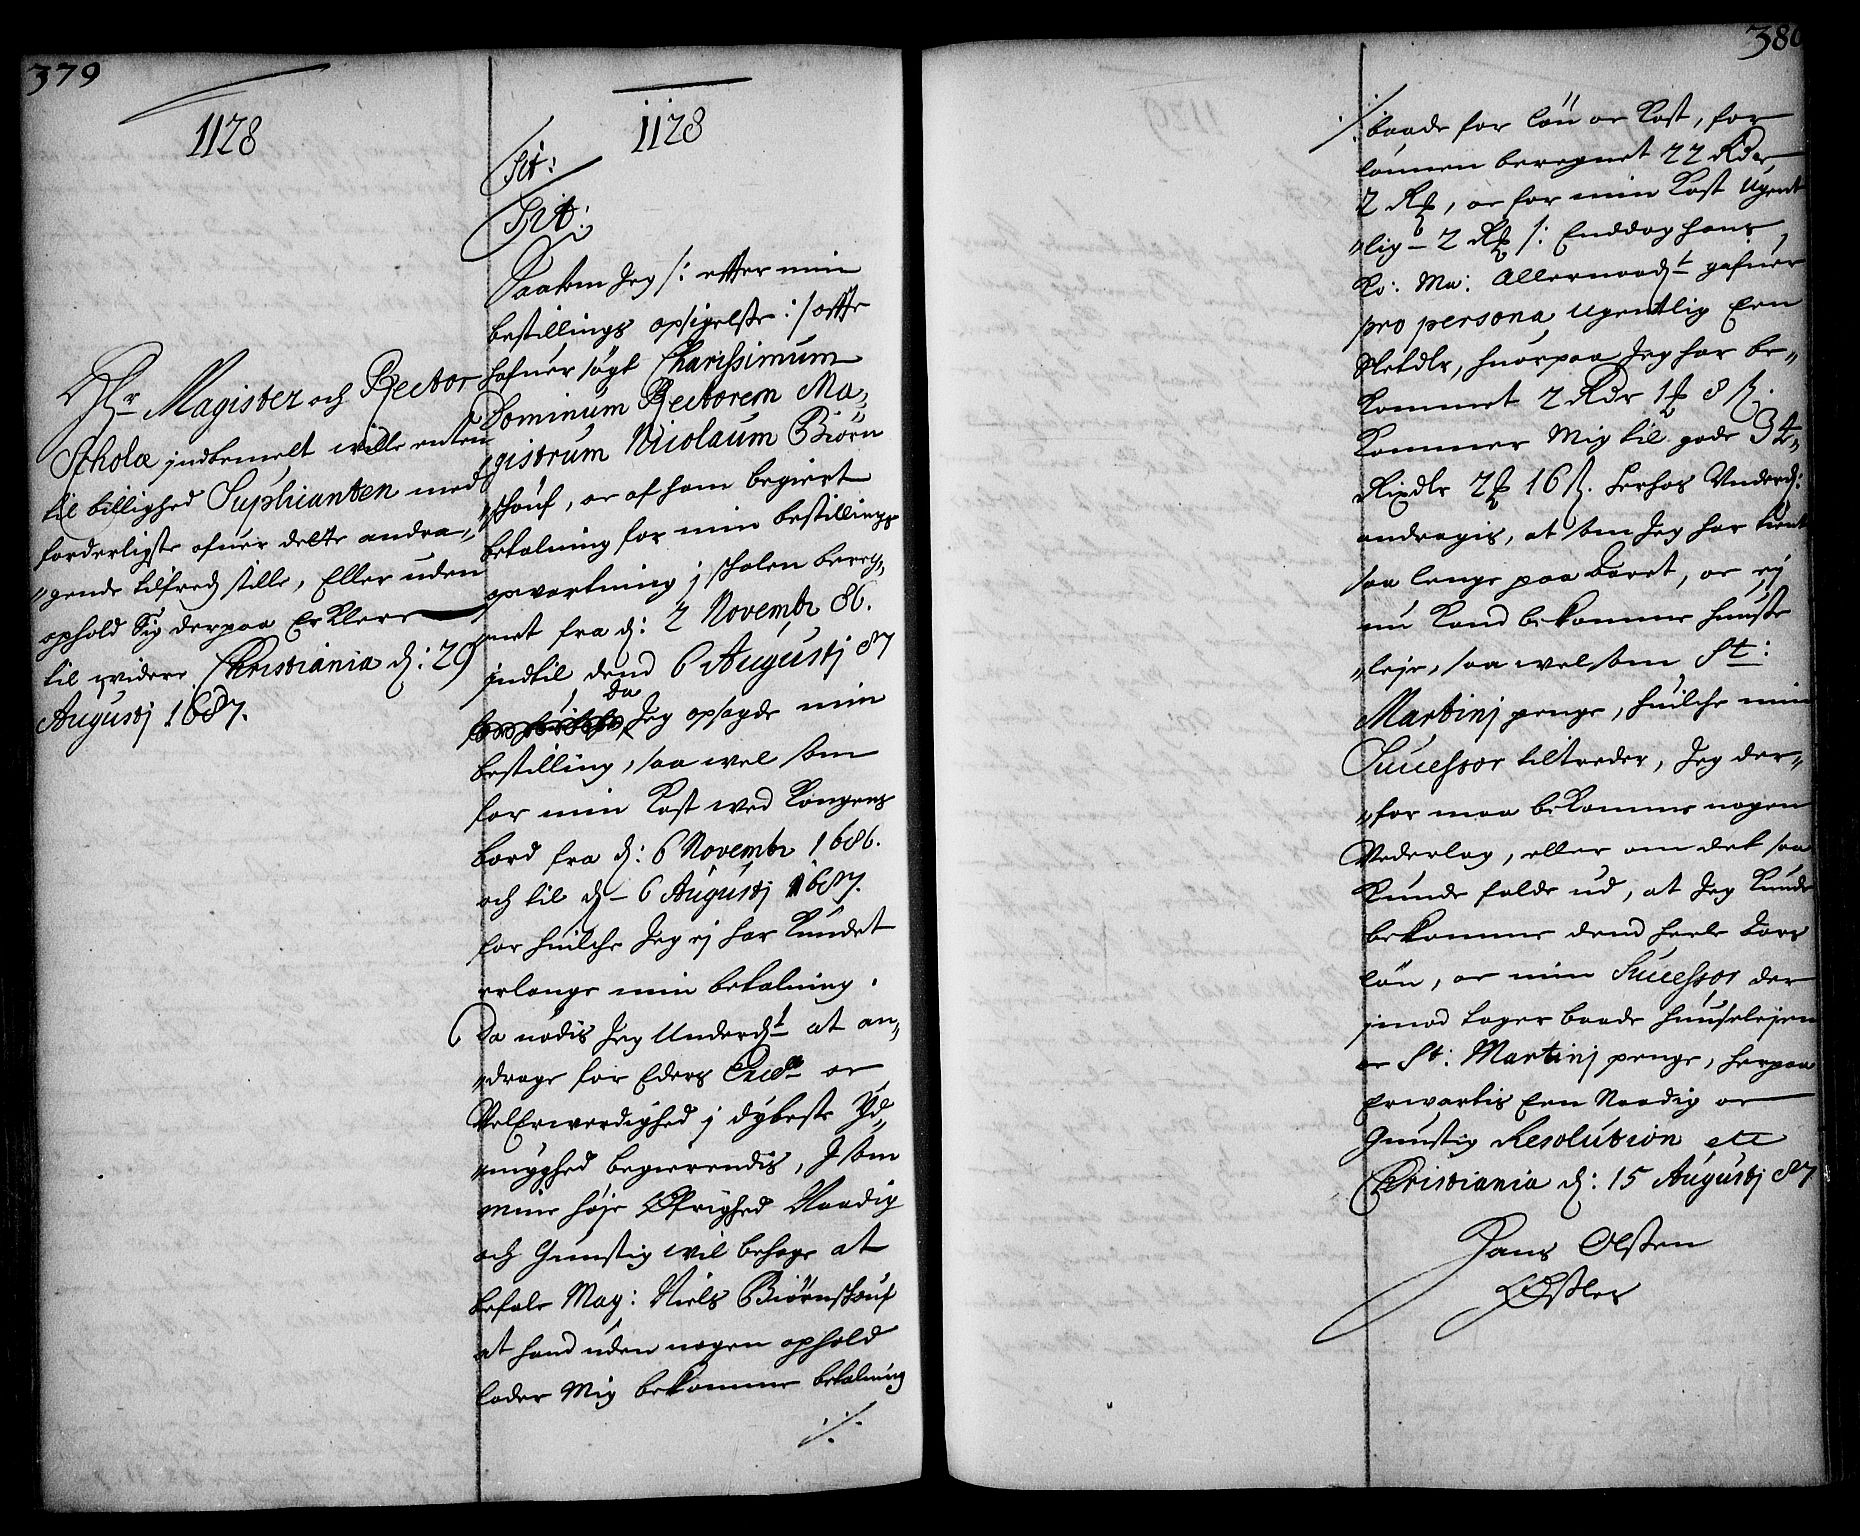 379
1128
Hr Magister och Rector
Scholæ jndbemelt wille enten
til billighed Suplicanten med
forderligste ofuer dette andra„
„gende tilfredstille, Eller uden
ophold Sig derpaa Erklere
til widere Christiania d: 29
Augustj 1687.
1128
Tit:
Tit:
Saasom Jeg /: efter min
bestillings opsigelse :/ offte
hafuer søgt Charissimum
Dominum Rectorem Ma„
„gistrum Nicolaum Biörn
„schouf, oc af ham begiert
betalning for min bestillings
opvartning j scholen bereg„
„net fra d: 2 Novembr 86.
jndtil dend 6 Augustj 87
da Jeg opsagde min
bestilling, saa wel som
for min Kost wed Kongens
bord fra d: 6 Novembr 1686.
och til d- 6 Augustj 1687.
for huilche Jeg ej har Kundet
erlange min betalning.
Da nødis Jeg Underd:t at an„
„drage for Eders Excell: oc
VelErwerdighed j dybeste Yd„
„myghed begierendis, J som
mine høje Øfrighed Naadig
och Gunstig wil behage at
befale Mag: Niels Biörnschouf
at hand uden nogen ophold
lader Mig bekomme betalning
./.
380
./. baade for løn oc Kost, for
lønnen beregnet 22 Rdr
2 R, oc for min Kost Ugent
„lig - 2 R /: Enddog hans
Ko: Ma: Allernaad:t gafuer
pro persona Ugentlig Een
Sletdlr, huorpaa Jeg har be„
Kommet 2 Rdr 1 8 s.
Kommer Mig til gode 34„
Rixdlr 2 16 s. herhos Underd:
andragis, at som Jeg har tient
saa lenge paa Aaret, oc ej
nu Kand bekomme huuse
„leje, saa welsom St:
Martinj penge, huilche min
Successor tiltreder, Jeg der„
„for maa bekomme nogen
Vederlag, eller om det saa
Kunde falde ud, at Jeg Kunde
bekomme dend heele Aars
løn, oc min Successor der
jmod tager baade huuselejen
oc St: Martinj penge, herpaa
Erwartis Een Naadig oc
Gunstig Resolution etc
Christiania d: 15 Augustj 87
Hans Olsen
Østler